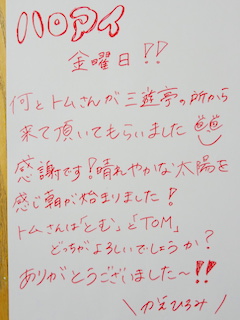 ハロアイ
金曜日!!
何とトムさんが三遊亭の所から
来て頂いてもらいました
感謝です!晴れやかな太陽を
感じ朝が始まりました!
トムさんは「とむ」「TOM」
どっちがよろしいでしょうか?
ありがとうございました〜!!
\かえひろみ/